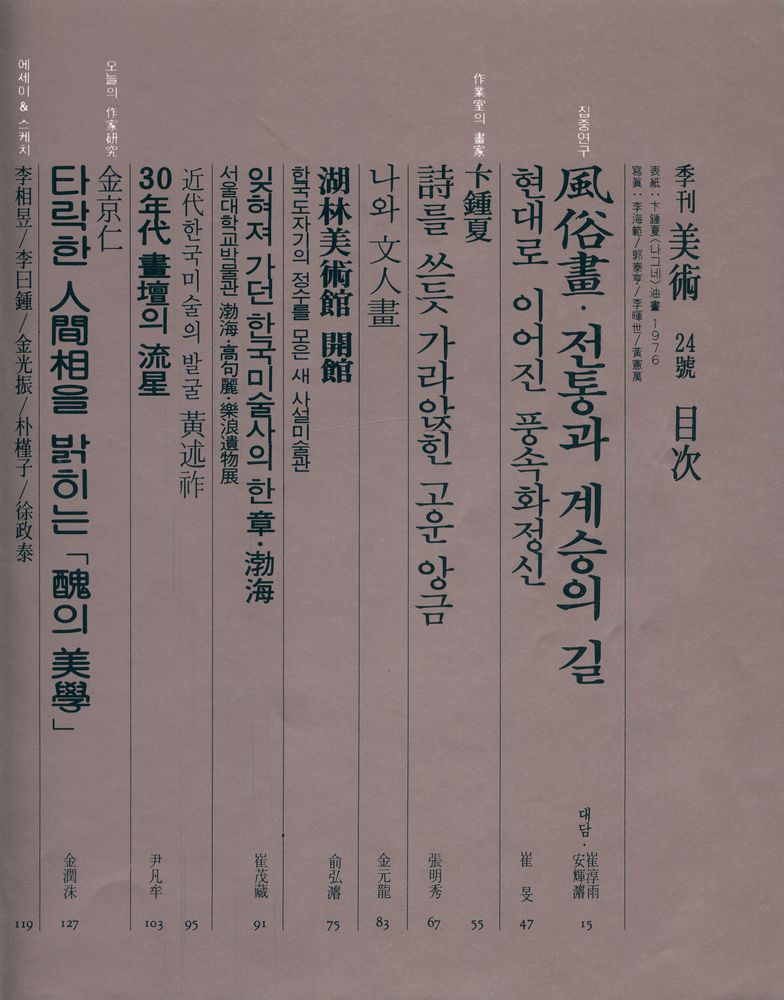 季刊 美術 24號 目次
表紙：卞鍾夏〈나그네〉油畫 1976
寫眞：李海範/郭泰亨/李暉世/黃憲萬
집중연구
風俗畫·전통과 계승의 길
대담·崔淳雨
安輝濬
15
현대로 이어진 풍속화정신
崔旻
47
作業室의 畫家
卞鍾夏
55
詩를 쓰듯 가라앉힌 고운 앙금
張明秀
67
나와 文人畫
金元龍
83
湖林美術館 開館
한국도자기의 정수를 모은 새 사설미술관
兪弘濬
75
잊혀져 가던 한국미술사의 한 章·渤海
서울대학교박물관 渤海·高句麗 樂浪遺物展
崔茂藏
91
近代한국미술의 발굴 黃述祚
95
30年代 畫壇의 流星
尹凡牟
103
오늘의 作家硏究
金京仁
타락한 人間相을 밝히는 「醜의 美學」
金潤洙
127
에세이 & 스케치
李相昱/李曰鍾/金光振/朴槿子/徐政泰
119